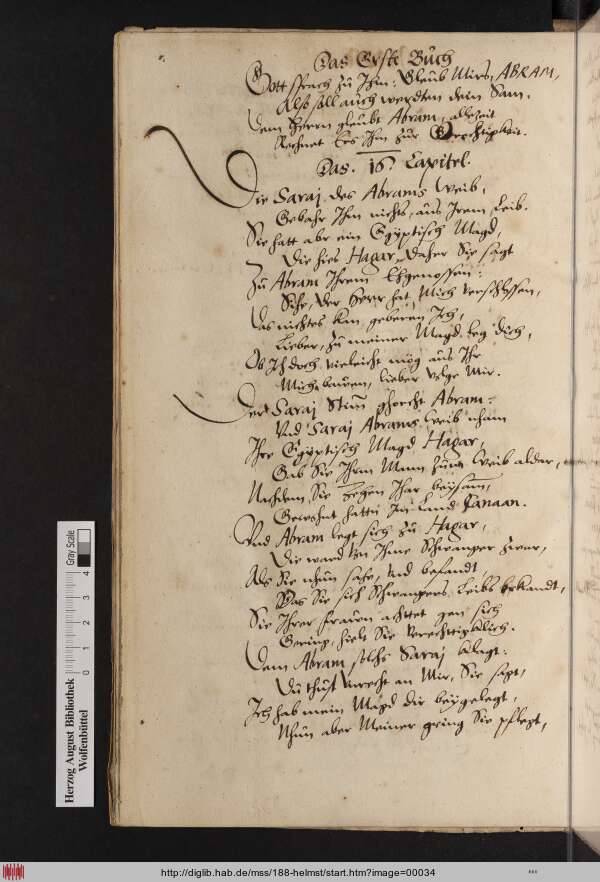 Das Erste Buch
Gott sprach zu Ihm: Glaub Mirs, ABRAM,
Also soll auch werdten dein Sam.
Dem Herrn glaubt Abram, allezeit
Rechnet Ers Ihm zur Gerechtigkeit.
Das. 16. Capitel.
Die Saraj des Abrams Weib,
Gebahr Ihm nichts, aus Irem Leib.
Sie hatt abr ein Egÿptisch Magd,
Die hies Hagar, daher Sie sagt
Zu Abram Ihrem Ehgenossen:
Sihe, der Herr hat Mich verschlossen,
Das nichtes kan geberen Ich,
Lieber, zu meiner Magd leg dich,
Ob Ich doch vieleicht mög aus Ihr
Mich bauen, lieber volge Mir.
Der Saraj Stim ghorcht Abram:
Vnd Saraj Abrams Weib nham
Ihre Egÿptisch Magd Hagar,
Gab Sie Ihrm Mann zum Weib aldar,
Nachdem Sie Zehen Ihar beÿsam,
Gewohnt hatten Im Land Canaan.
Vnd Abram legt sich zu Hagar,
Die ward von Ihme Schwanger zwar,
Als Sie nhun sahe, vnd befandt
Das Sie sich Schwangers Leibs erkandt,
Sie Ihrer frauen achttet gen sich
Gering, hielt Sie verechttigklich.
Dem Abram solchs Saraj klagt:
Du thust Vnrecht an Mir, Sie sagt,
Ich hab mein Magd dir beÿgelegt,
Nhun aber Meiner gring Sie pflegt,
Herzog August Bibliothek
Wolfenbüttel
Gray Scale
0 1 2 3 4
http://diglib.hab.de/mss/188-helmst/start.htm?image=00034